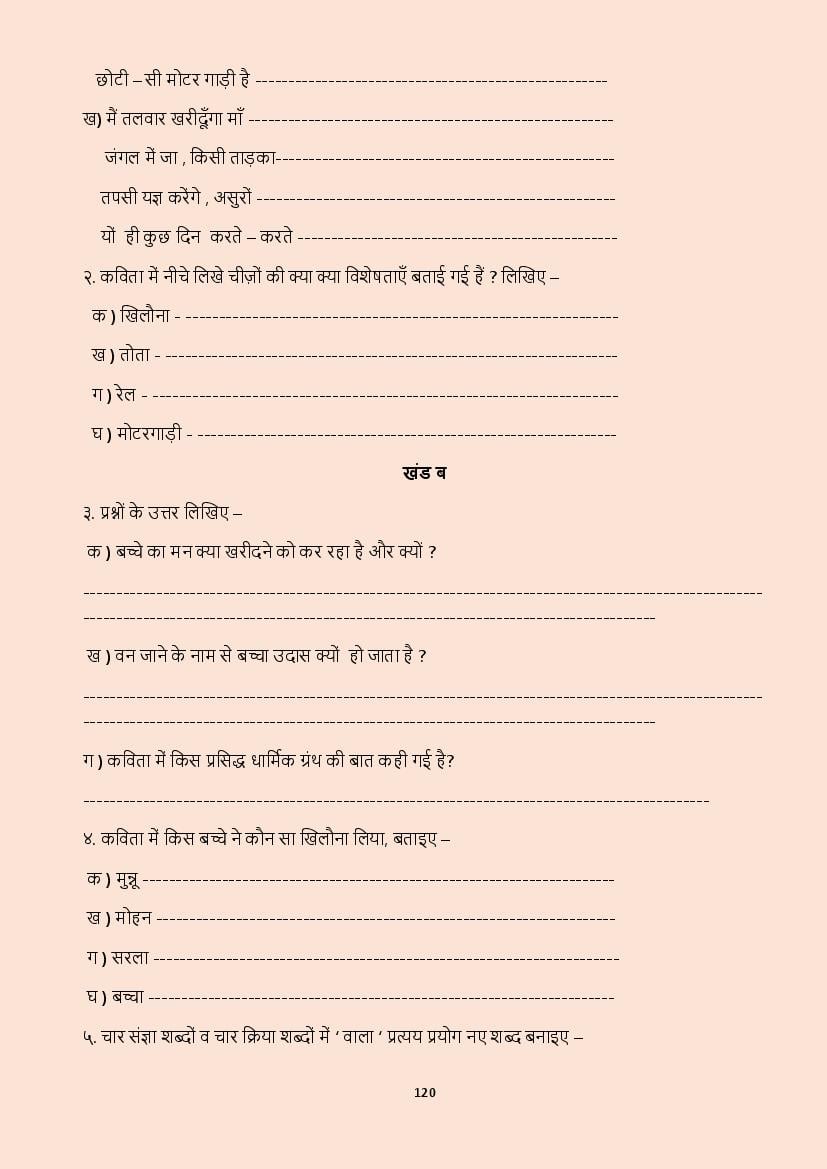 छोटी – सी मोटर गाड़ी है -----------------------------------------------------
ख) मैं तलवार खरीदूँगा माँ -------------------------------------------------------
जंगल में जा , किसी ताड़का---------------------------------------------------
तपसी यज्ञ करेंगे , असुरों ------------------------------------------------------
यों ही कुछ दिन करते – करते ------------------------------------------------
२. कविता में नीचे लिखे चीज़ों की क्या क्या विशेषताएँ बताई गई हैं ? लिखिए –
क ) खिलौना - -----------------------------------------------------------------
ख ) तोता - --------------------------------------------------------------------
ग ) रेल - ----------------------------------------------------------------------
घ ) मोटरगाड़ी - ---------------------------------------------------------------
खंड ब
३. प्रश्नों के उत्तर लिखिए –
क ) बच्चे का मन क्या खरीदने को कर रहा है और क्यों ?
------------------------------------------------------------------------------------------------------
--------------------------------------------------------------------------------------
ख ) वन जाने के नाम से बच्चा उदास क्यों हो जाता है ?
------------------------------------------------------------------------------------------------------
--------------------------------------------------------------------------------------
ग ) कविता में किस प्रसिद्ध धार्मिक ग्रंथ की बात कही गई है?
----------------------------------------------------------------------------------------------
४. कविता में किस बच्चे ने कौन सा खिलौना लिया, बताइए –
क ) मुन्नू -----------------------------------------------------------------------
ख ) मोहन ---------------------------------------------------------------------
ग ) सरला ----------------------------------------------------------------------
घ ) बच्चा ----------------------------------------------------------------------
५. चार संज्ञा शब्दों व चार क्रिया शब्दों में ‘ वाला ‘ प्रत्यय प्रयोग नए शब्द बनाइए –
120